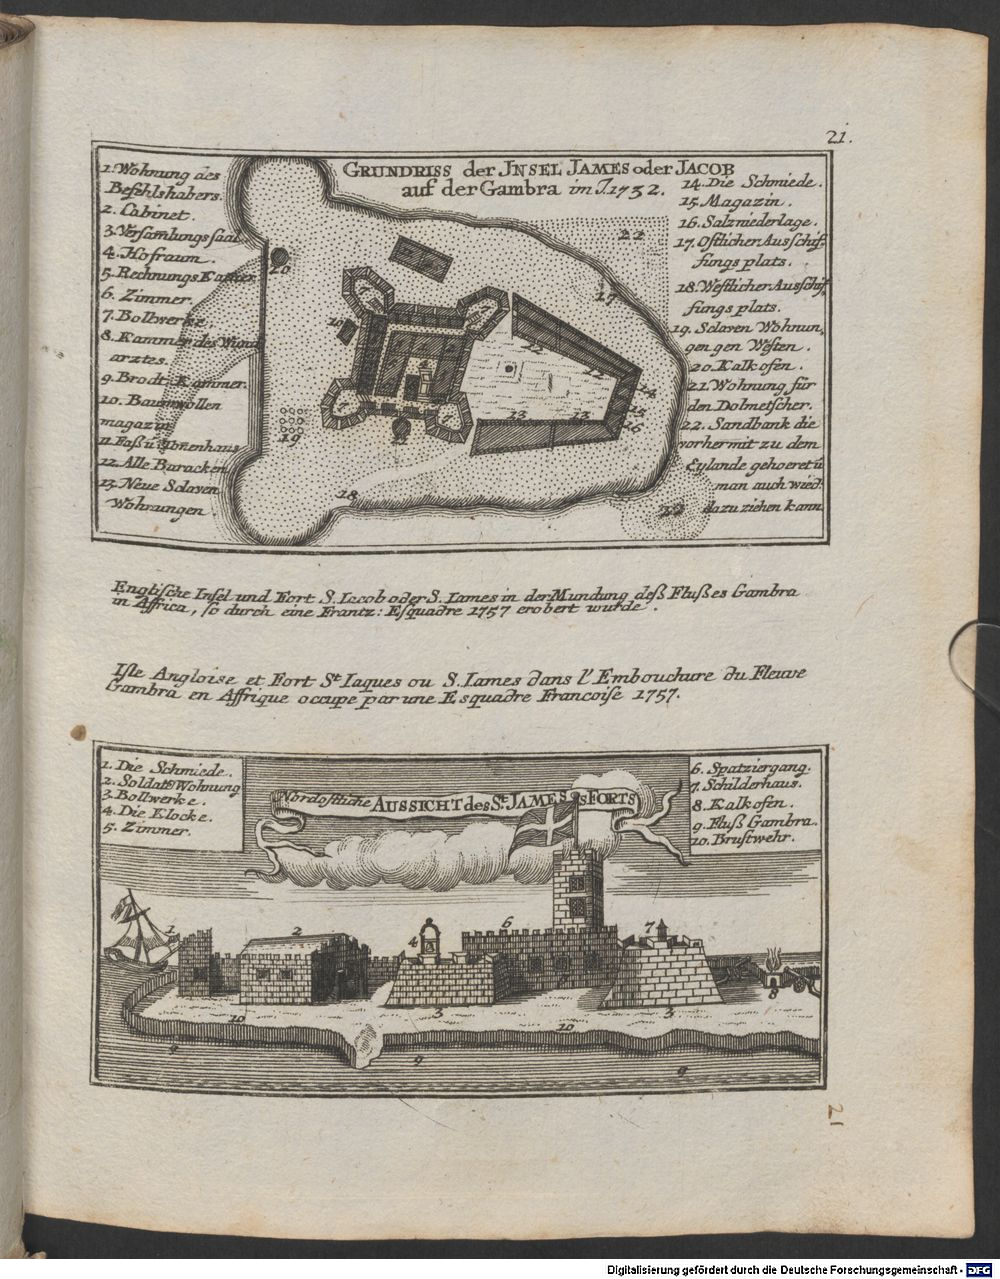 21.
GRUNDRISS der JNSEL JAMES oder JACOB
auf der Gambra im J. 1732.
1. Wohnung des
Befehlshabers.
2. Cabinet.
3. Versamlungs saal
4. Hofraum.
5. Rechnungs Kammer
6. Zimmer.
7. Bollwerke.
8. Kammer des Wund
arztes.
9. Brodt Kammer.
10. Baumwollen
magazin
11. Faß ü
12. Alle Baracken
13. Neue Sclaven
Wohnungen
14. Die Schmiede.
15. Magazin.
16. Salzniederlage.
17. Ostlicher Ausschif-
fungs plats.
18. Westlicher Ausschif-
fungs plats.
19. Sclaven Wohnun,
gen gen Westen.
20. Kalkofen.
21. Wohnung für
den Dolmetscher.
22. Sandbank die
vorher mit zu dem
Eylande gehoeret ü
man auch wied
dazu ziehen kann
20
22
17
19
12
12
14
15
16
13
13
19
18
22
Englische Insel und Fort S. Iacob oder S. Iames in der Mundung deß Flußes Gambra
in Affrica, so durch eine Frantz: Esquadre 1757 erobert wurde.
Isle Angloise et Fort St. Iaques ou S. Iames dans l'Embouchure du Fleuve
Gambra en Affrique occupe par une Esquadre Francoise 1757.
1. Die Schmiede.
2. Soldatē Wohnung
3. Bollwerke.
4. Die Klocke.
5. Zimmer.
Nordostliche AUSSICHT des St. JAMES FORTS
6. Spatziergang.
7. Schilderhaus.
8. Kalkofen.
9. Fluß Gambra.
10. Brustwehr.
1
2
4
6
7
8
3
3
10
10
9
9
9
21
Digitalisierung gefördert durch die Deutsche Forschungsgemeinschaft - DFG